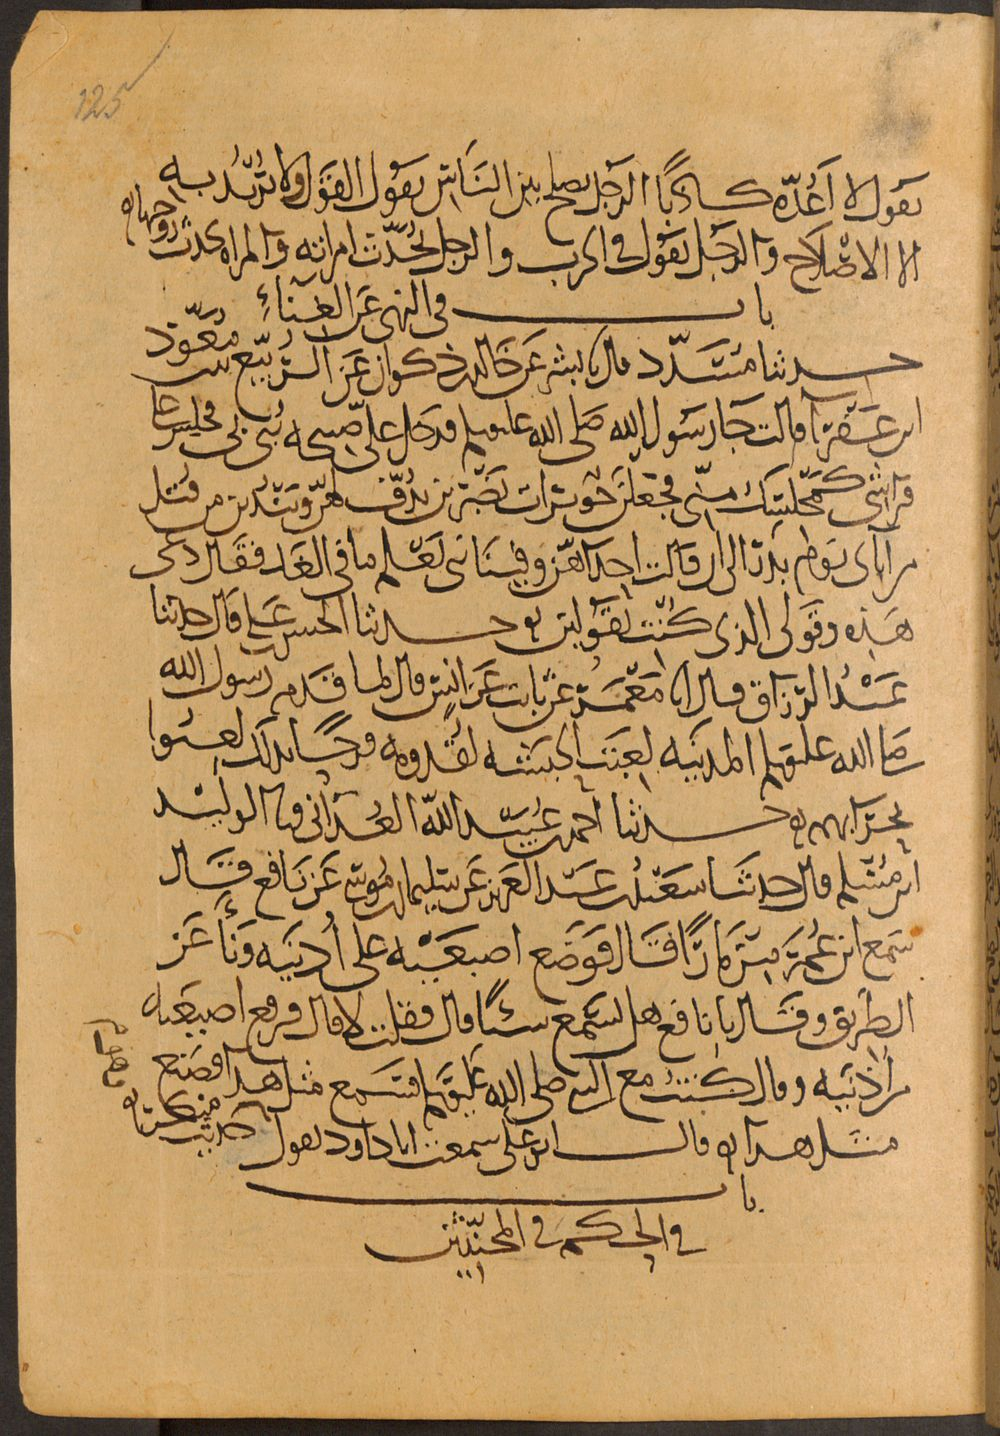 125
يقول لا اعده كاذبا الرجل يصلح بين الناس يقول القول ولا يريد به
الا الاصلاح والرجل يقول في الحرب والرجل يحدث امراته والمراه تحدث زوجها
باب في النهي عن الغناء
حدثنا مسدد قال نا بشر عن خالد بن ذكوان عن الربيع بنت معوذ
ابن عفراء قالت جا رسول الله صلى الله عليه وسلم فدخل علي صبيحه بني بي فجلس على
فراشي كمجلسك مني فجعلن جويرات يضربن بدف لهن ويندبن من قتل
من اباي يوم بدر الى ان قالت احداهن وفينا نبي يعلم ما في الغد فقال دعي
هذه وقولي الذي كنت تقولين حدثنا الحسن بن علي قال حدثنا
عبد الرزاق قال انا معمر عن ثابت عن انس قال لما قدم رسول الله
صلى الله عليه وسلم المدينه لعبت الحبشه لقدومه فرحا بذلك لعبوا
بحرابهم حدثنا احمد بن عبيد الله الغداني نا الوليد
ابن مسلم قال حدثنا سعيد بن عبد العزيز عن سليمان بن موسى عن نافع قال
سمع ابن عمر مزمارا قال فوضع اصبعيه على اذنيه ونأى عن
الطريق وقال يا نافع هل تسمع شيئا قال فقلت لا قال فرفع اصبعيه
من اذنيه وقال كنت مع النبي صلى الله عليه وسلم فسمع مثل هذا فصنع
مثل هذا قال ابو علي سمعت ابا داود يقول حديث منكر
باب
في الحكم في المخنثين